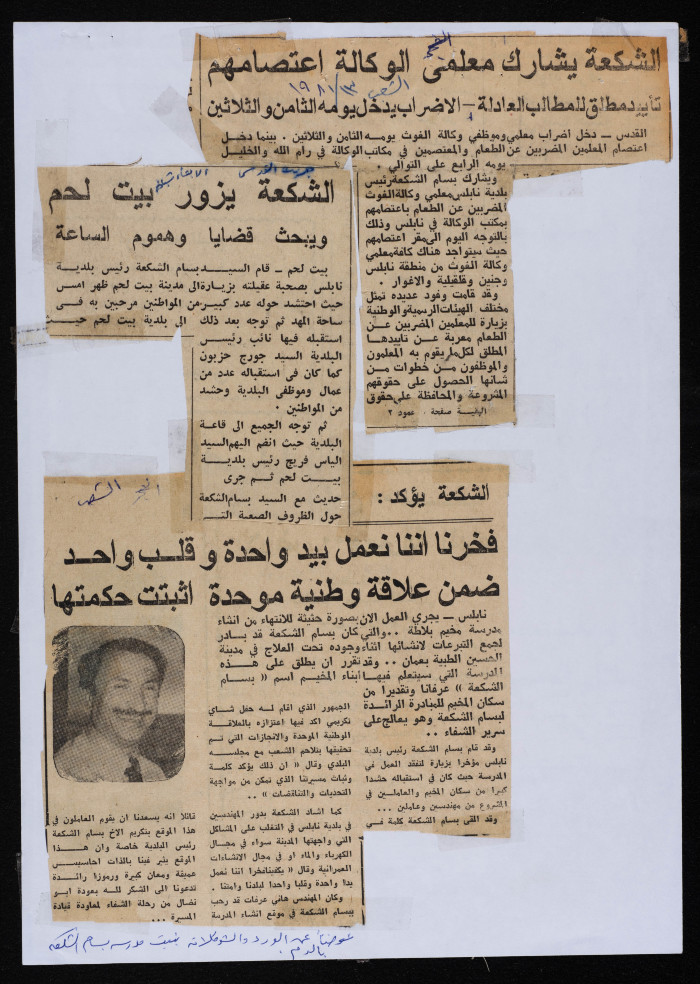 الشكعة يشارك معلمي الوكالة اعتصامهم
الشعب
تأييد مطلق للمطالب العادلة - الاضراب يدخل يومه الثامن والثلاثين
القدس – دخل أضراب معلمي وموظفي وكالة الغوث يومه الثامن والثلاثين . بينما دخل
اعتصام المعلمين المضربين عن الطعام والمعتصمين في مكاتب الوكالة في رام الله والخليل
يومه الرابع على التوالي .
ويشارك بسام الشكعة رئيس
بلدية نابلس معلمي وكالة الغوث
المضربين عن الطعام باعتصامهم
بمكتب الوكالة في نابلس وذلك
بالتوجه اليوم الى مقر اعتصامهم
حيث سيتواجد هناك كافة معلمي
وكالة الغوث من منطقة نابلس
وجنين وقلقيلية والاغوار .
وقد قامت وفود عديده تمثل
مختلف الهيئات الرسمية والوطنية
بزيارة للمعلمين المضربين عن
الطعام معربة عن تاييدها
المطلق لكل ما يقوم به المعلمون
والموظفون من خطوات من
شانها الحصول على حقوقهم
المشروعة والمحافظة على حقوق
البقية صفحة . عمود ٢
الشكعة يزور بيت لحم
ويبحث قضايا وهموم الساعة
بيت لحم – قام السيد بسام الشكعة رئيس بلدية
نابلس بصحبة عقيلته بزيارة الى مدينة بيت لحم ظهر امس
حيث احتشد حوله عدد كبير من المواطنين مرحبين به في
ساحة المهد ثم توجه بعد ذلك الى بلدية بيت لحم حيث
استقبله فيها نائب رئيس
البلدية السيد جورج حزبون
كما كان في استقباله عدد من
عمال وموظفي البلدية وحشد
من المواطنين .
ثم توجه الجميع الى قاعة
البلدية حيث انضم اليهم السيد
الياس فريج رئيس بلدية
بيت لحم ثم جرى
حديث مع السيد بسام الشكعة
حول الظروف الصعبة التي
الشعب
الشكعة يؤكد :
فخرنا اننا نعمل بيد واحدة و قلب واحد
ضمن علاقة وطنية موحدة اثبتت حكمتها
نابلس – يجري العمل الان بصورة حثيثة للانتهاء من انشاء
مدرسة مخيم بلاطة .. والتي كان بسام الشكعة قد بادر
لجمع التبرعات لانشائها اثناء وجوده تحت العلاج في مدينة
الحسين الطبية بعمان .. وقد تقرر ان يطلق على هذه
المدرسة التي سيتعلم فيها ابناء المخيم اسم « بسام
الشكعة » عرفانا وتقديرا من
سكان المخيم للمبادرة الرائدة
لبسام الشكعة وهو يعالج على
سرير الشفاء ..
وقد قام بسام الشكعة رئيس بلدية
نابلس مؤخرا بزيارة لتفقد العمل في
المدرسة حيث كان في استقباله حشدا
كبيرا من سكان المخيم والعاملين في
المشروع من مهندسين وعاملين ...
وقد القى بسام الشكعة كلمة في
الجمهور الذي اقام له حفل شاي
تكريمي اكد فيها اعتزازه بالعلاقة
الوطنية الموحدة والانجازات التي تم
تحقيقها بتلاحم الشعب مع مجلسه
البلدي وقال « ان ذلك يؤكد حكمة
وثبات مسيرتنا الذي تمكن من مواجهة
التحديات والتناقضات » ..
كما اشاد الشكعة بدور المهندسين
في بلدية نابلس في التغلب على المشاكل
التي واجهتها المدينة سواء في مجال
الكهرباء والماء او في مجال الانشاءات
العمرانية وقال « يكفينا فخرا اننا نعمل
يدا واحدة وقلبا واحدا لبلدنا وامتنا .
وكان المهندس هاني عرفات قد رحب
ببسام الشكعة في موقع انشاء المدرسة
قائلا انه يسعدنا ان يقوم العاملون في
هذا الموقع بتكريم الاخ بسام الشكعة
رئيس البلدية خاصة وان هذا
الموقع يثير فينا بالذات احاسيس
عميقة ومعان كبيرة ورموزا رائدة
تدعونا الى الشكر لله بعودة ابو
نضال من رحلة الشفاء لمعاودة قيادة
المسيرة ...
عوضاً عن الورد والشوكلاته بنيت مدرسة بسام الشكعه